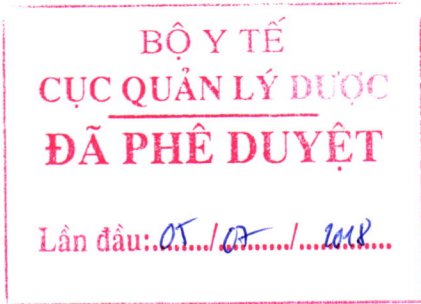 BỘ Y TẾ
CỤC QUẢN LÝ DƯỢC
ĐÃ PHÊ DUYỆT
Lần đầu:.05..../.07......./....2018.....